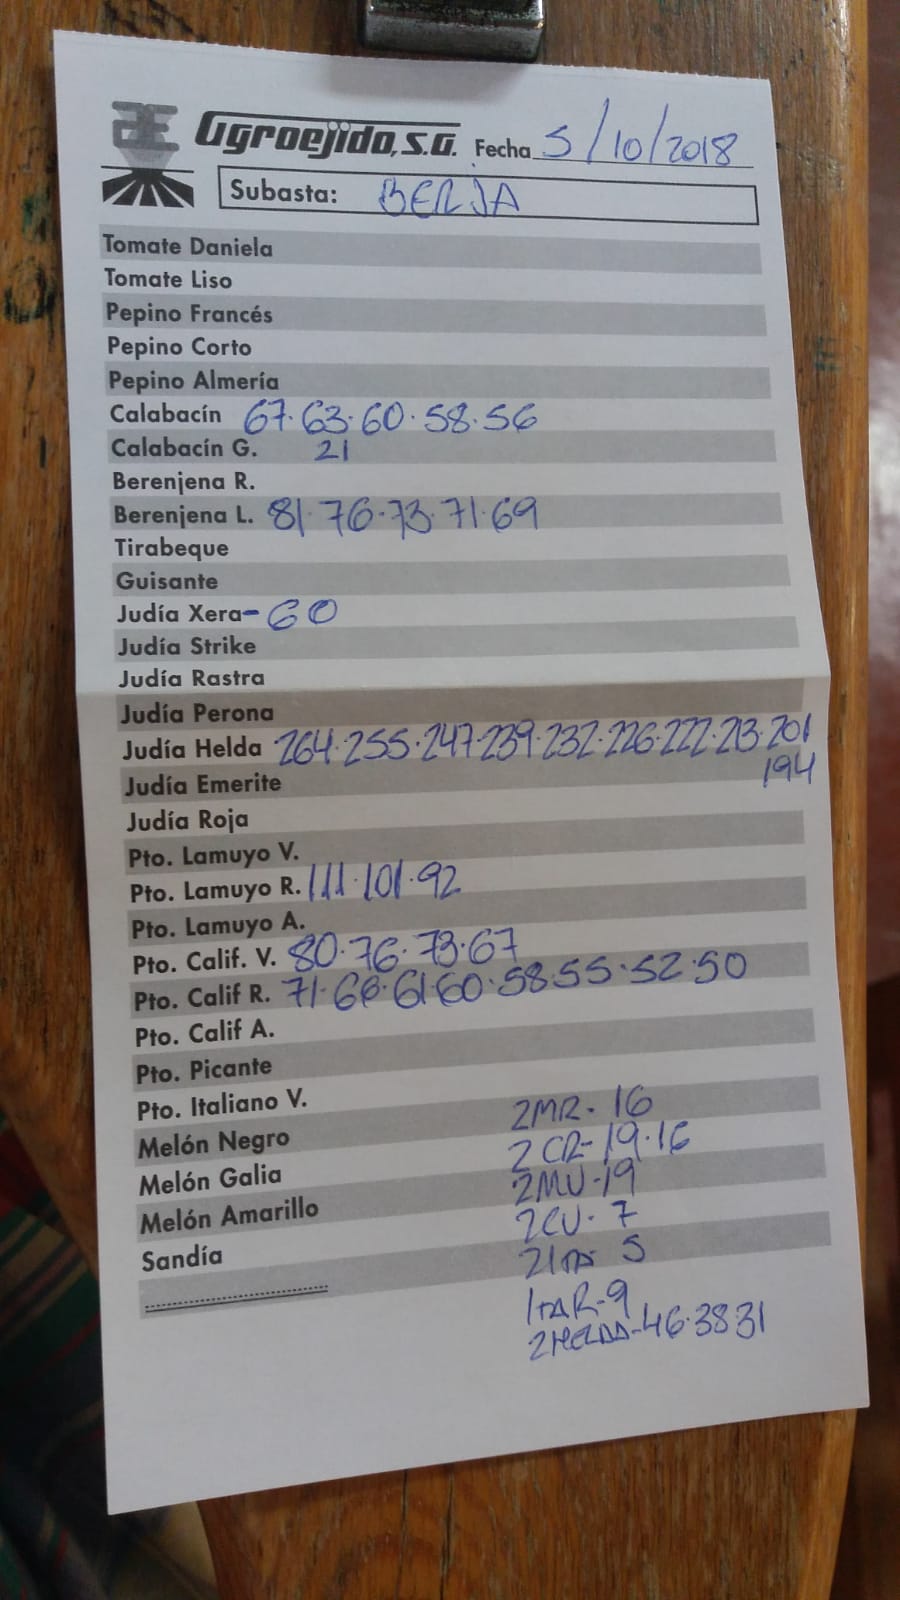 Agroejido, S.A. Fecha 5/10/2018
Subasta: BERJA
Tomate Daniela
Tomate Liso
Pepino Francés
Pepino Corto
Pepino Almería
Calabacín 67·63·60·58·56
Calabacín G. 21
Berenjena R.
Berenjena L. 81·76·73·71·69
Tirabeque
Guisante
Judía Xera-60
Judía Strike
Judía Rastra
Judía Perona
Judía Helda 264·255·247·239·232·226·222·213·201
194
Judía Emerite
Judía Roja
Pto. Lamuyo V.
Pto. Lamuyo R. 111·101·92
Pto. Lamuyo A.
Pto. Calif. V. 80·76·73·67
Pto. Calif R. 71·66·61·60·58·55·52·50
Pto. Calif A.
Pto. Picante
Pto. Italiano V.
Melón Negro
Melón Galia
Melón Amarillo
Sandía
2MR- 16
2CR-19·16
2MV-19
2CV- 7
2ITA 5
ITAR-9
2HELDA-46·38·31